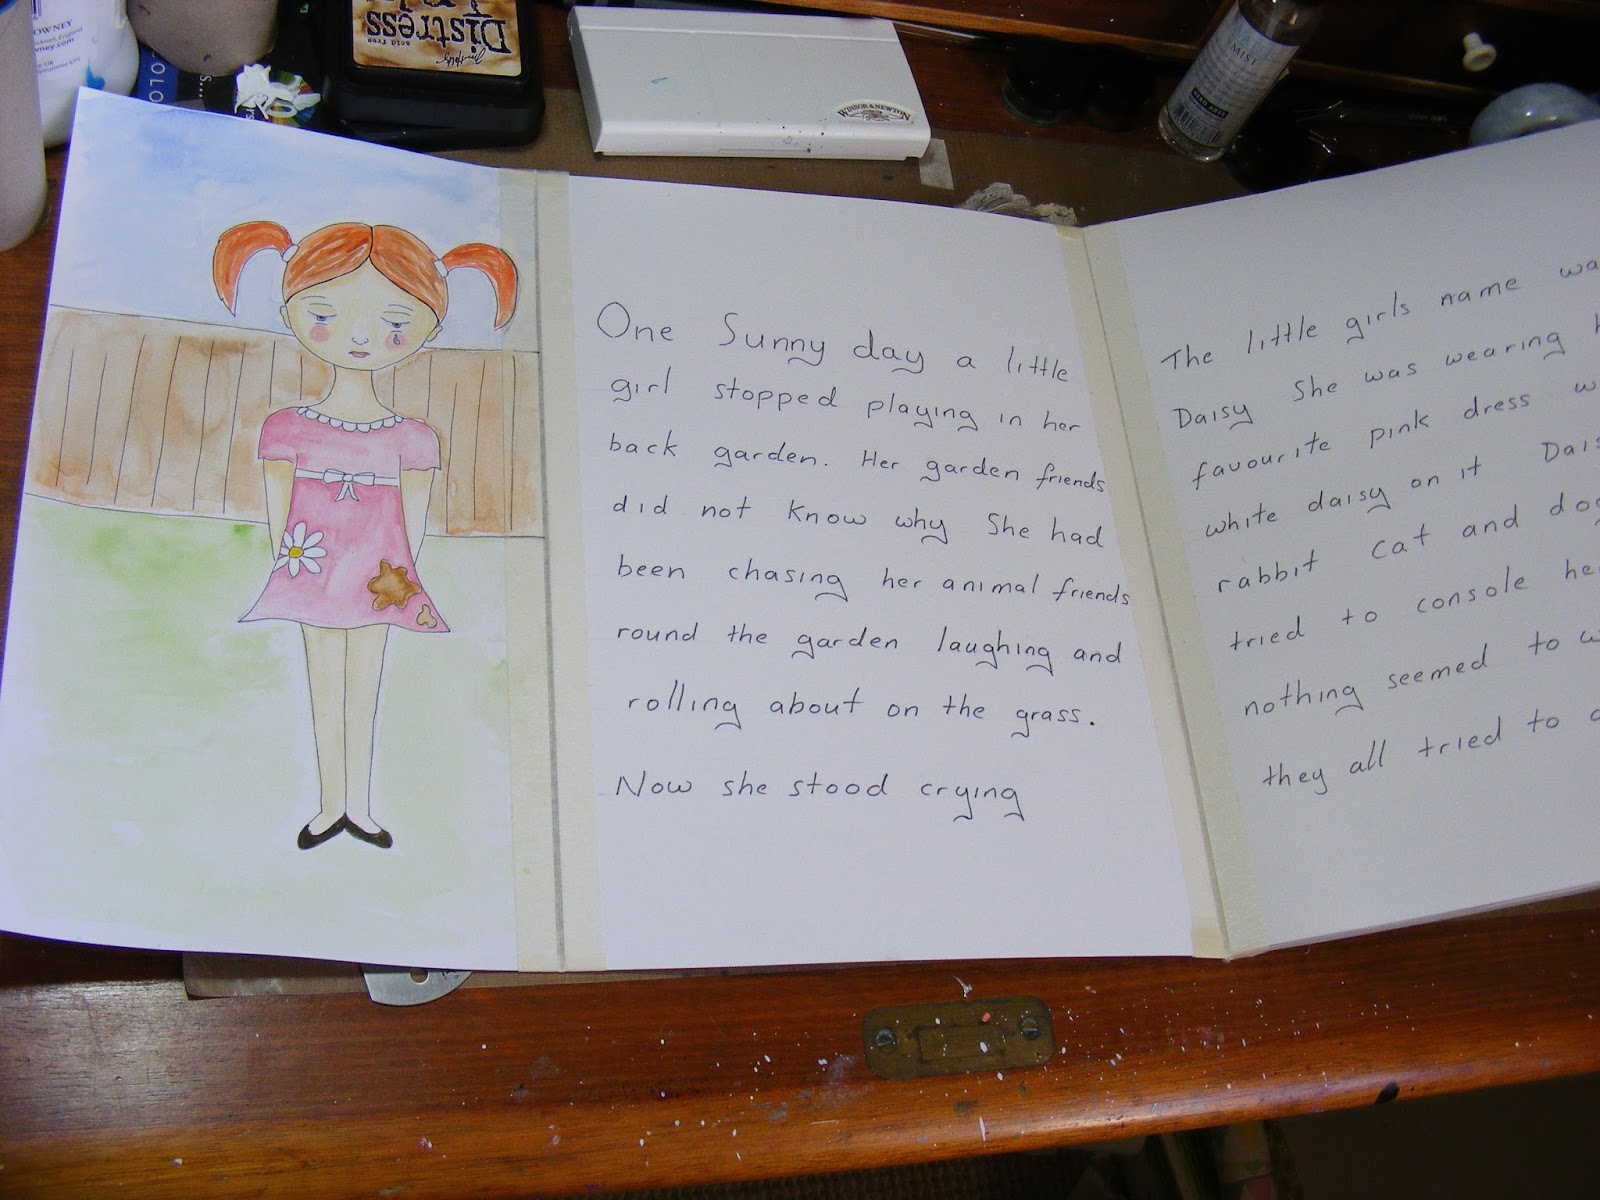 OWNEY
Distress
Ink
acid free
WINSOR & NEWTON
MIST
One Sunny day a little
girl stopped playing in her
back garden. Her garden friends
did not know why She had
been chasing her animal friends
round the garden laughing and
rolling about on the grass.
Now she stood crying
The little girls name
Daisy She was wearing
favourite pink dress
white daisy on it
rabbit cat and
tried to console
nothing seemed to
they all tried to